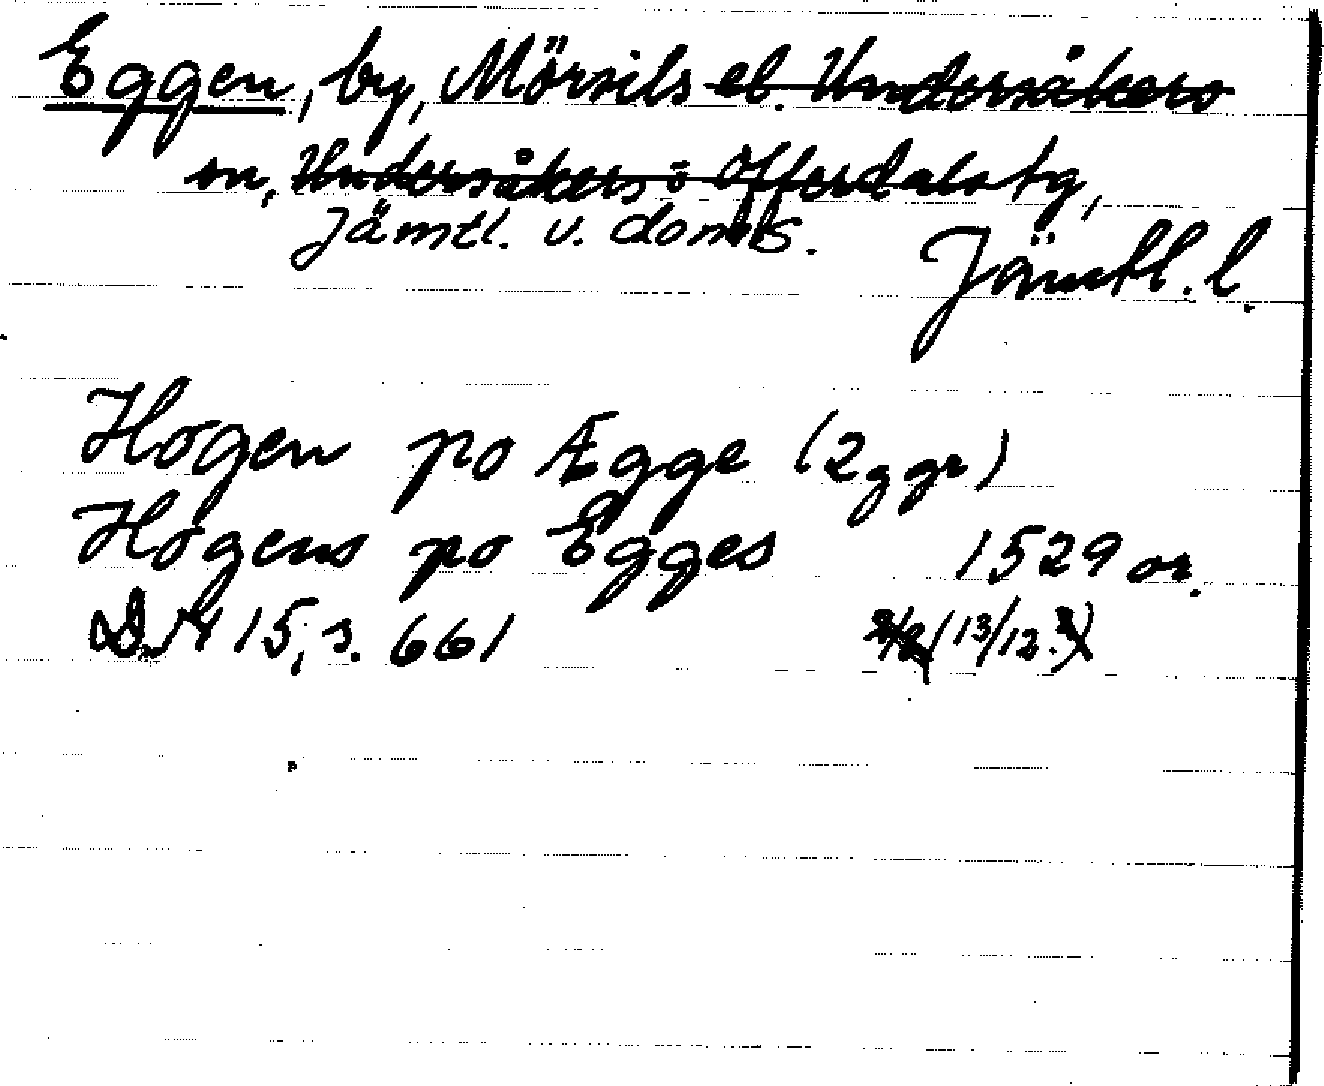 Eggen, by, Mörsils el. Undersåkers
sn, Undersåkers o Offerdals tg,
Jämtl. v. doms.
Jämtl. l.
Hogen po Ægge (2 ggr)
Hogens po Egges 1529 or.
DN 15, s. 661 (13/12.)